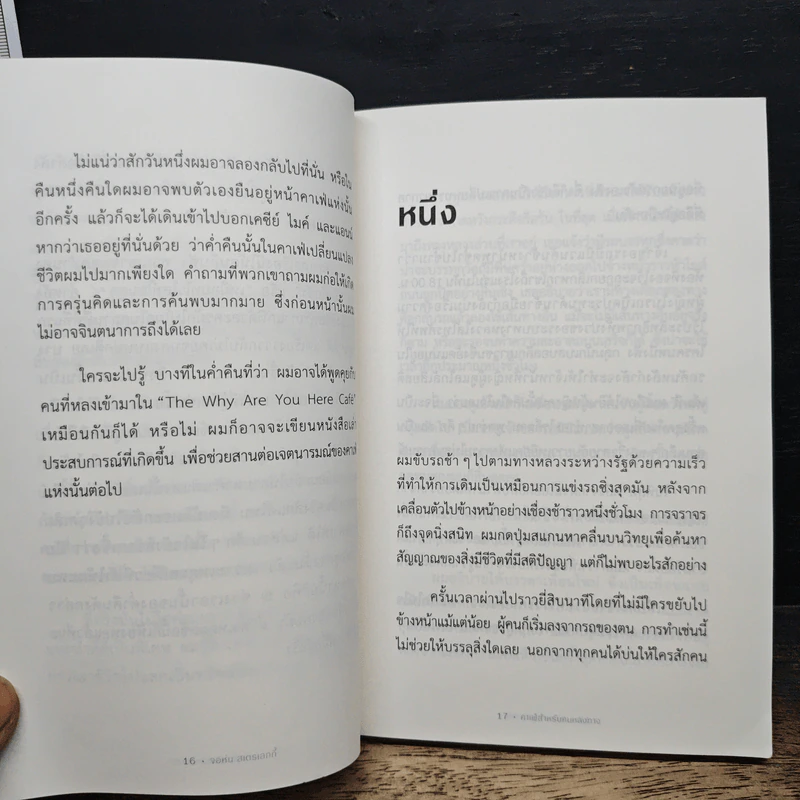 ไม่แน่ว่าสักวันหนึ่งผมอาจลองกลับไปที่นั่น หรือใน
คืนหนึ่งคืนใดผมอาจพบตัวเองยืนอยู่หน้าคาเฟ่แห่งนั้น
อีกครั้ง แล้วก็จะได้เดินเข้าไปบอกเคซีย์ ไมค์ และแอนน์
หากว่าเธออยู่ที่นั่นด้วย ว่าค่ำคืนนั้นในคาเฟ่เปลี่ยนแปลง
ชีวิตผมไปมากเพียงใด คำถามที่พวกเขาถามผมก่อให้เกิด
การครุ่นคิดและการค้นพบมากมาย ซึ่งก่อนหน้านั้นผม
ไม่อาจจินตนาการถึงได้เลย
ใครจะไปรู้ บางทีในค่ำคืนที่ว่า ผมอาจได้พูดคุยกับ
คนที่หลงเข้ามาใน “The Why Are You Here Café”
เหมือนกันก็ได้ หรือไม่ ผมก็อาจจะเขียนหนังสือเล่า
ประสบการณ์ที่เกิดขึ้น เพื่อช่วยสานต่อเจตนารมณ์ของคาเฟ่
แห่งนั้นต่อไป
16 • จอห์น สเตรเลกกี้
หนึ่ง
ผมขับรถช้า ๆ ไปตามทางหลวงระหว่างรัฐด้วยความเร็ว
ที่ทำให้การเดินเป็นเหมือนการแข่งรถซิ่งสุดมัน หลังจาก
เคลื่อนตัวไปข้างหน้าอย่างเชื่องช้าราวหนึ่งชั่วโมง การจราจร
ก็ถึงจุดนิ่งสนิท ผมกดปุ่มสแกนหาคลื่นบนวิทยุเพื่อค้นหา
สัญญาณของสิ่งมีชีวิตที่มีสติปัญญา แต่ก็ไม่พบอะไรสักอย่าง
ครั้นเวลาผ่านไปราวยี่สิบนาทีโดยที่ไม่มีใครขยับไป
ข้างหน้าแม้แต่น้อย ผู้คนก็เริ่มลงจากรถของตน การทำเช่นนี้
ไม่ช่วยให้บรรลุสิ่งใดเลย นอกจากทุกคนได้บ่นให้ใครสักคน
17 • คาเฟ่สำหรับคนหลงทาง